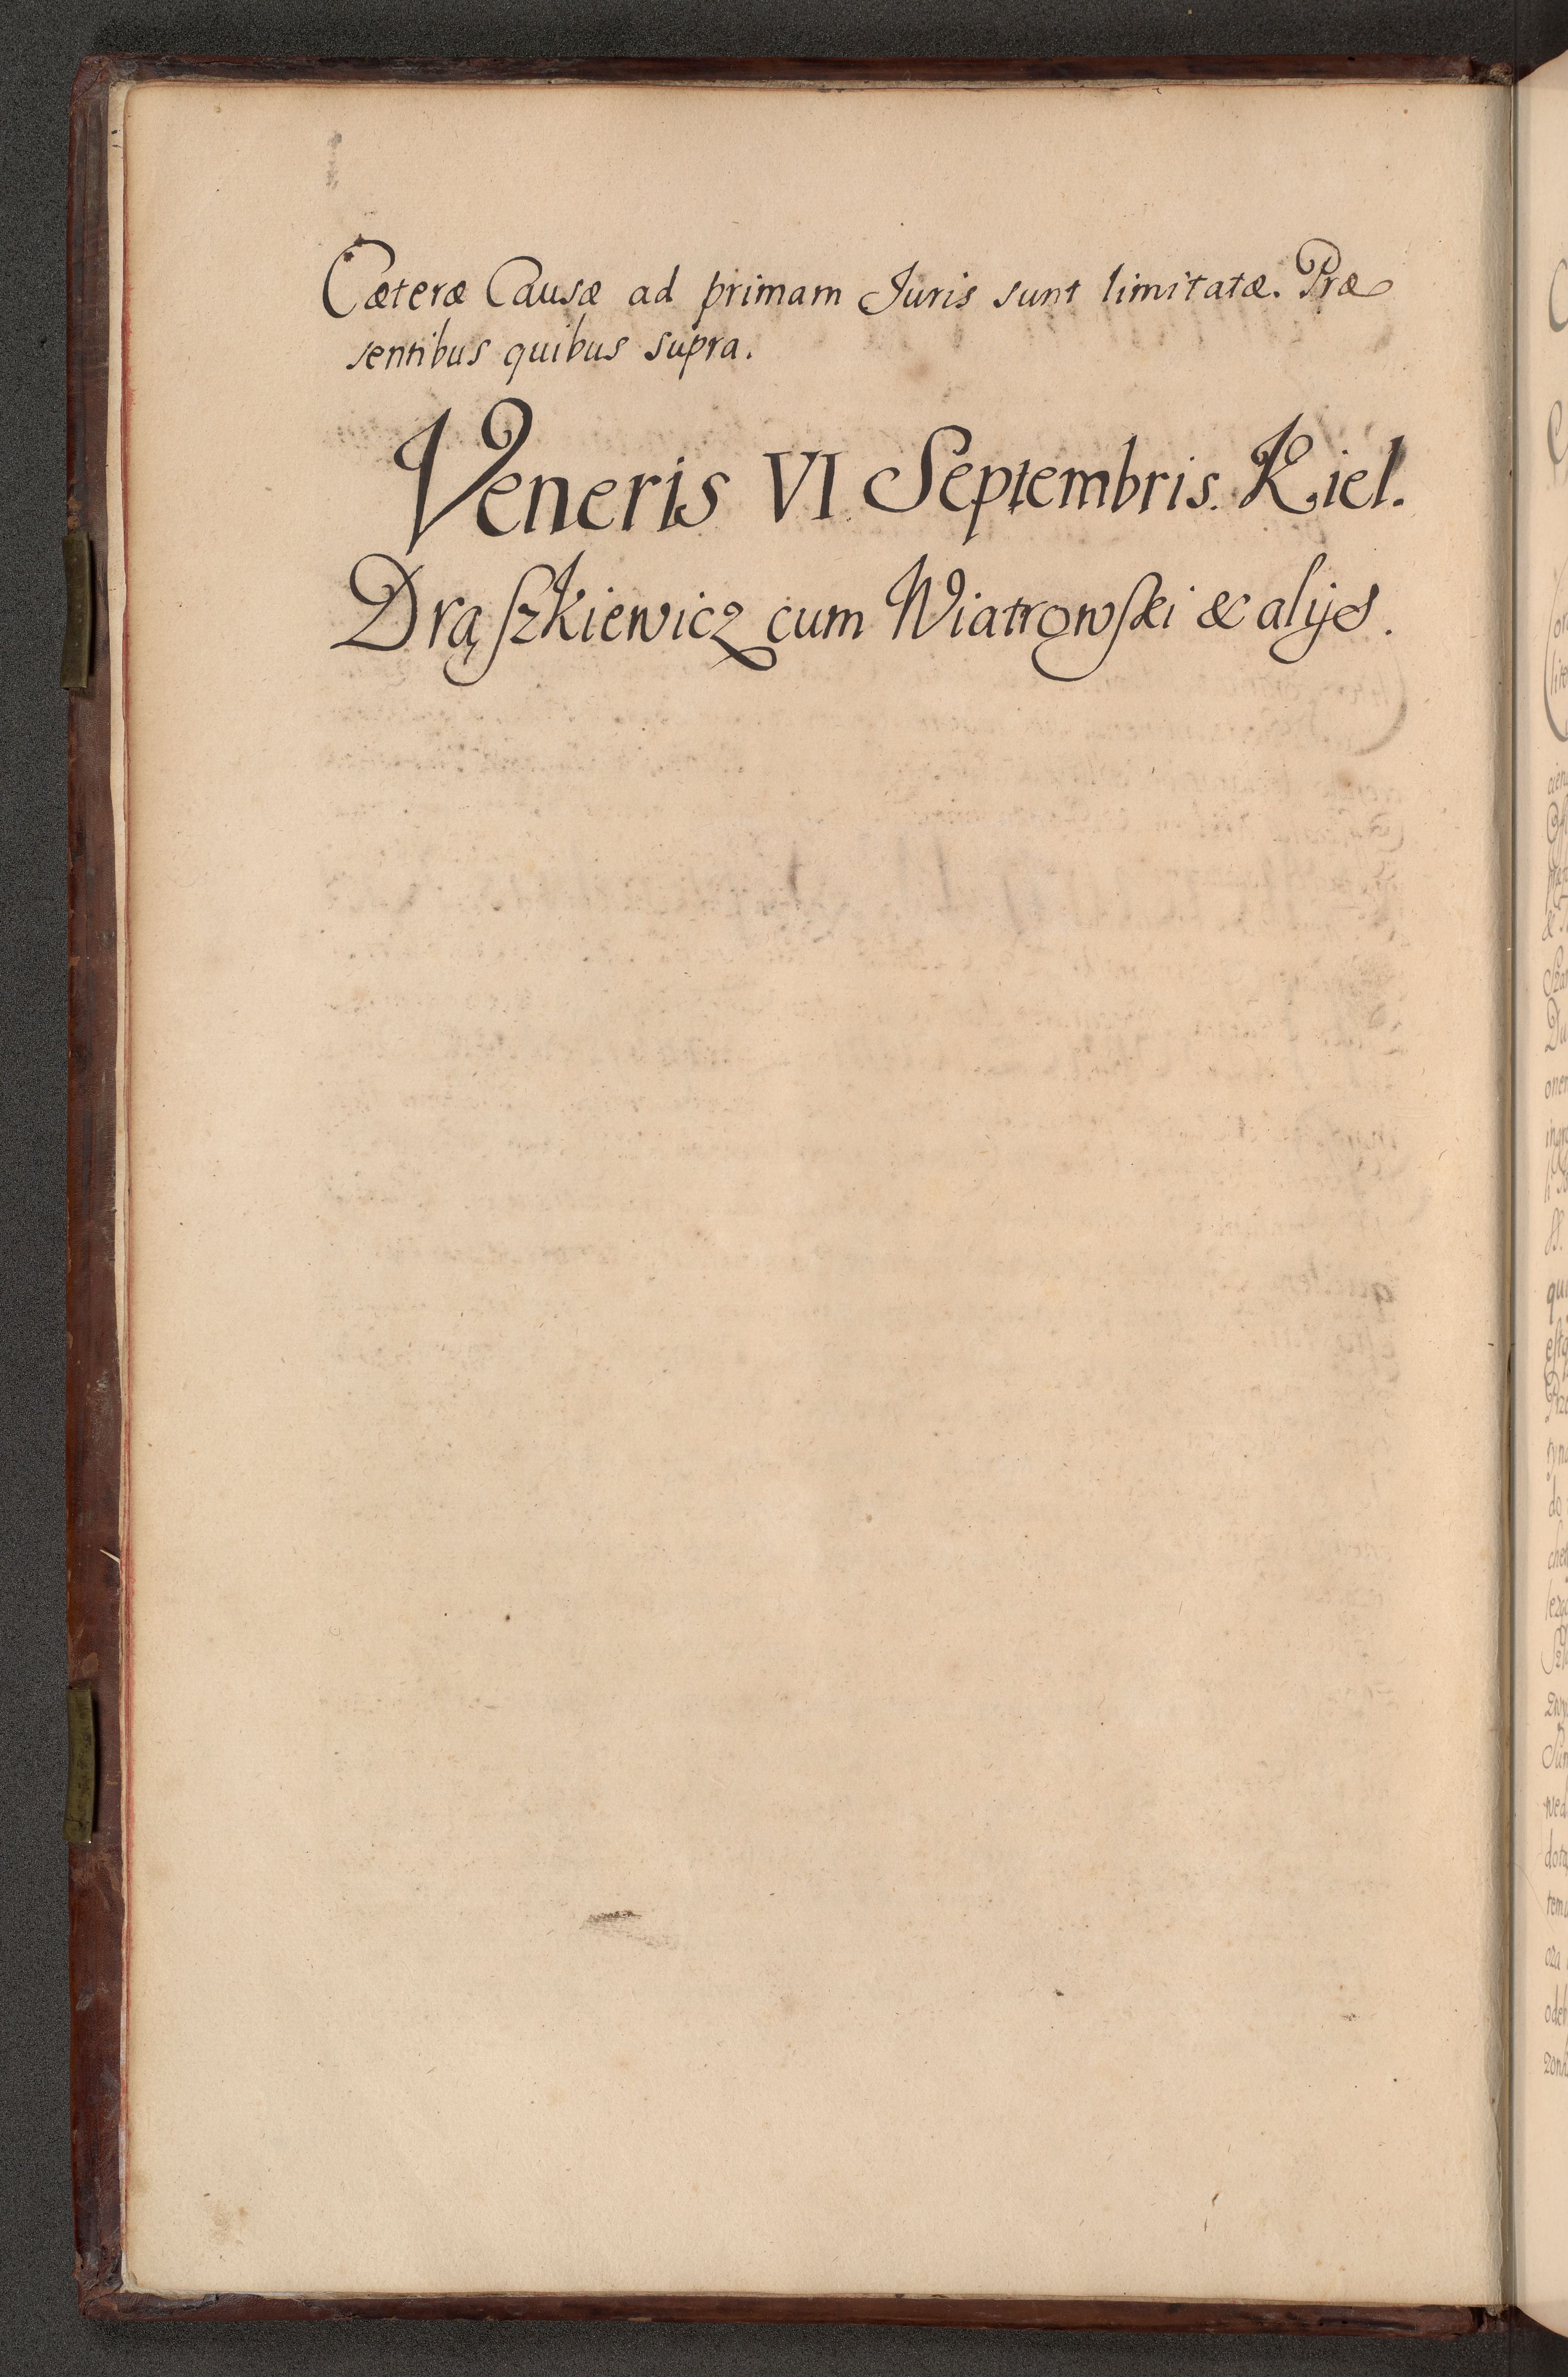 Cæteræ Causæ ad primam Juris sunt limitatæ. Præ
sentibus quibus supra.
Veneris VI Septembris. Kiel.
Drąſzkiewicz cum Wiatrowſki & alijs.